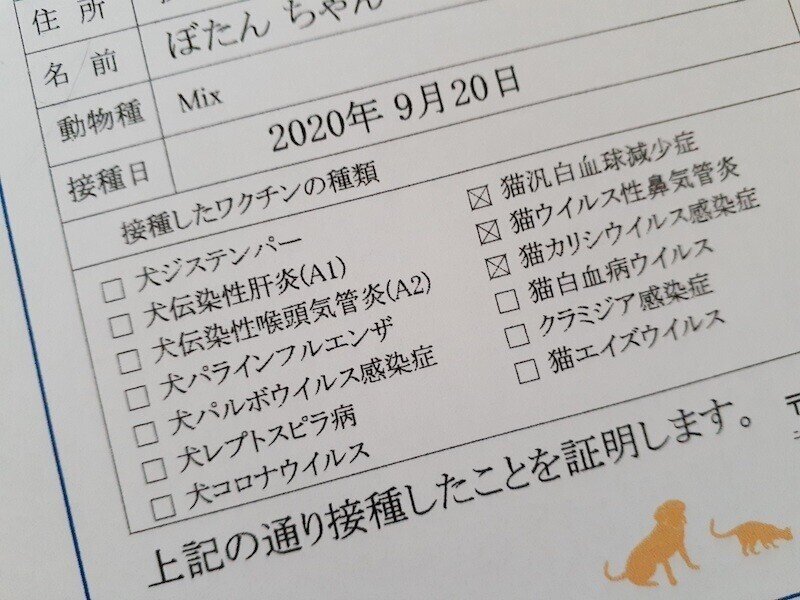 住所
名前 ぼたん ちゃん
動物種 Mix
接種日 2020年 9月20日
接種したワクチンの種類
□ 犬ジステンパー
□ 犬伝染性肝炎(A1)
□ 犬伝染性喉頭気管炎(A2)
□ 犬パラインフルエンザ
□ 犬パルボウイルス感染症
□ 犬レプトスピラ病
□ 犬コロナウイルス
☒ 猫汎白血球減少症
☒ 猫ウイルス性鼻気管炎
☒ 猫カリシウイルス感染症
□ 猫白血病ウイルス
□ クラミジア感染症
□ 猫エイズウイルス
上記の通り接種したことを証明します。
〒